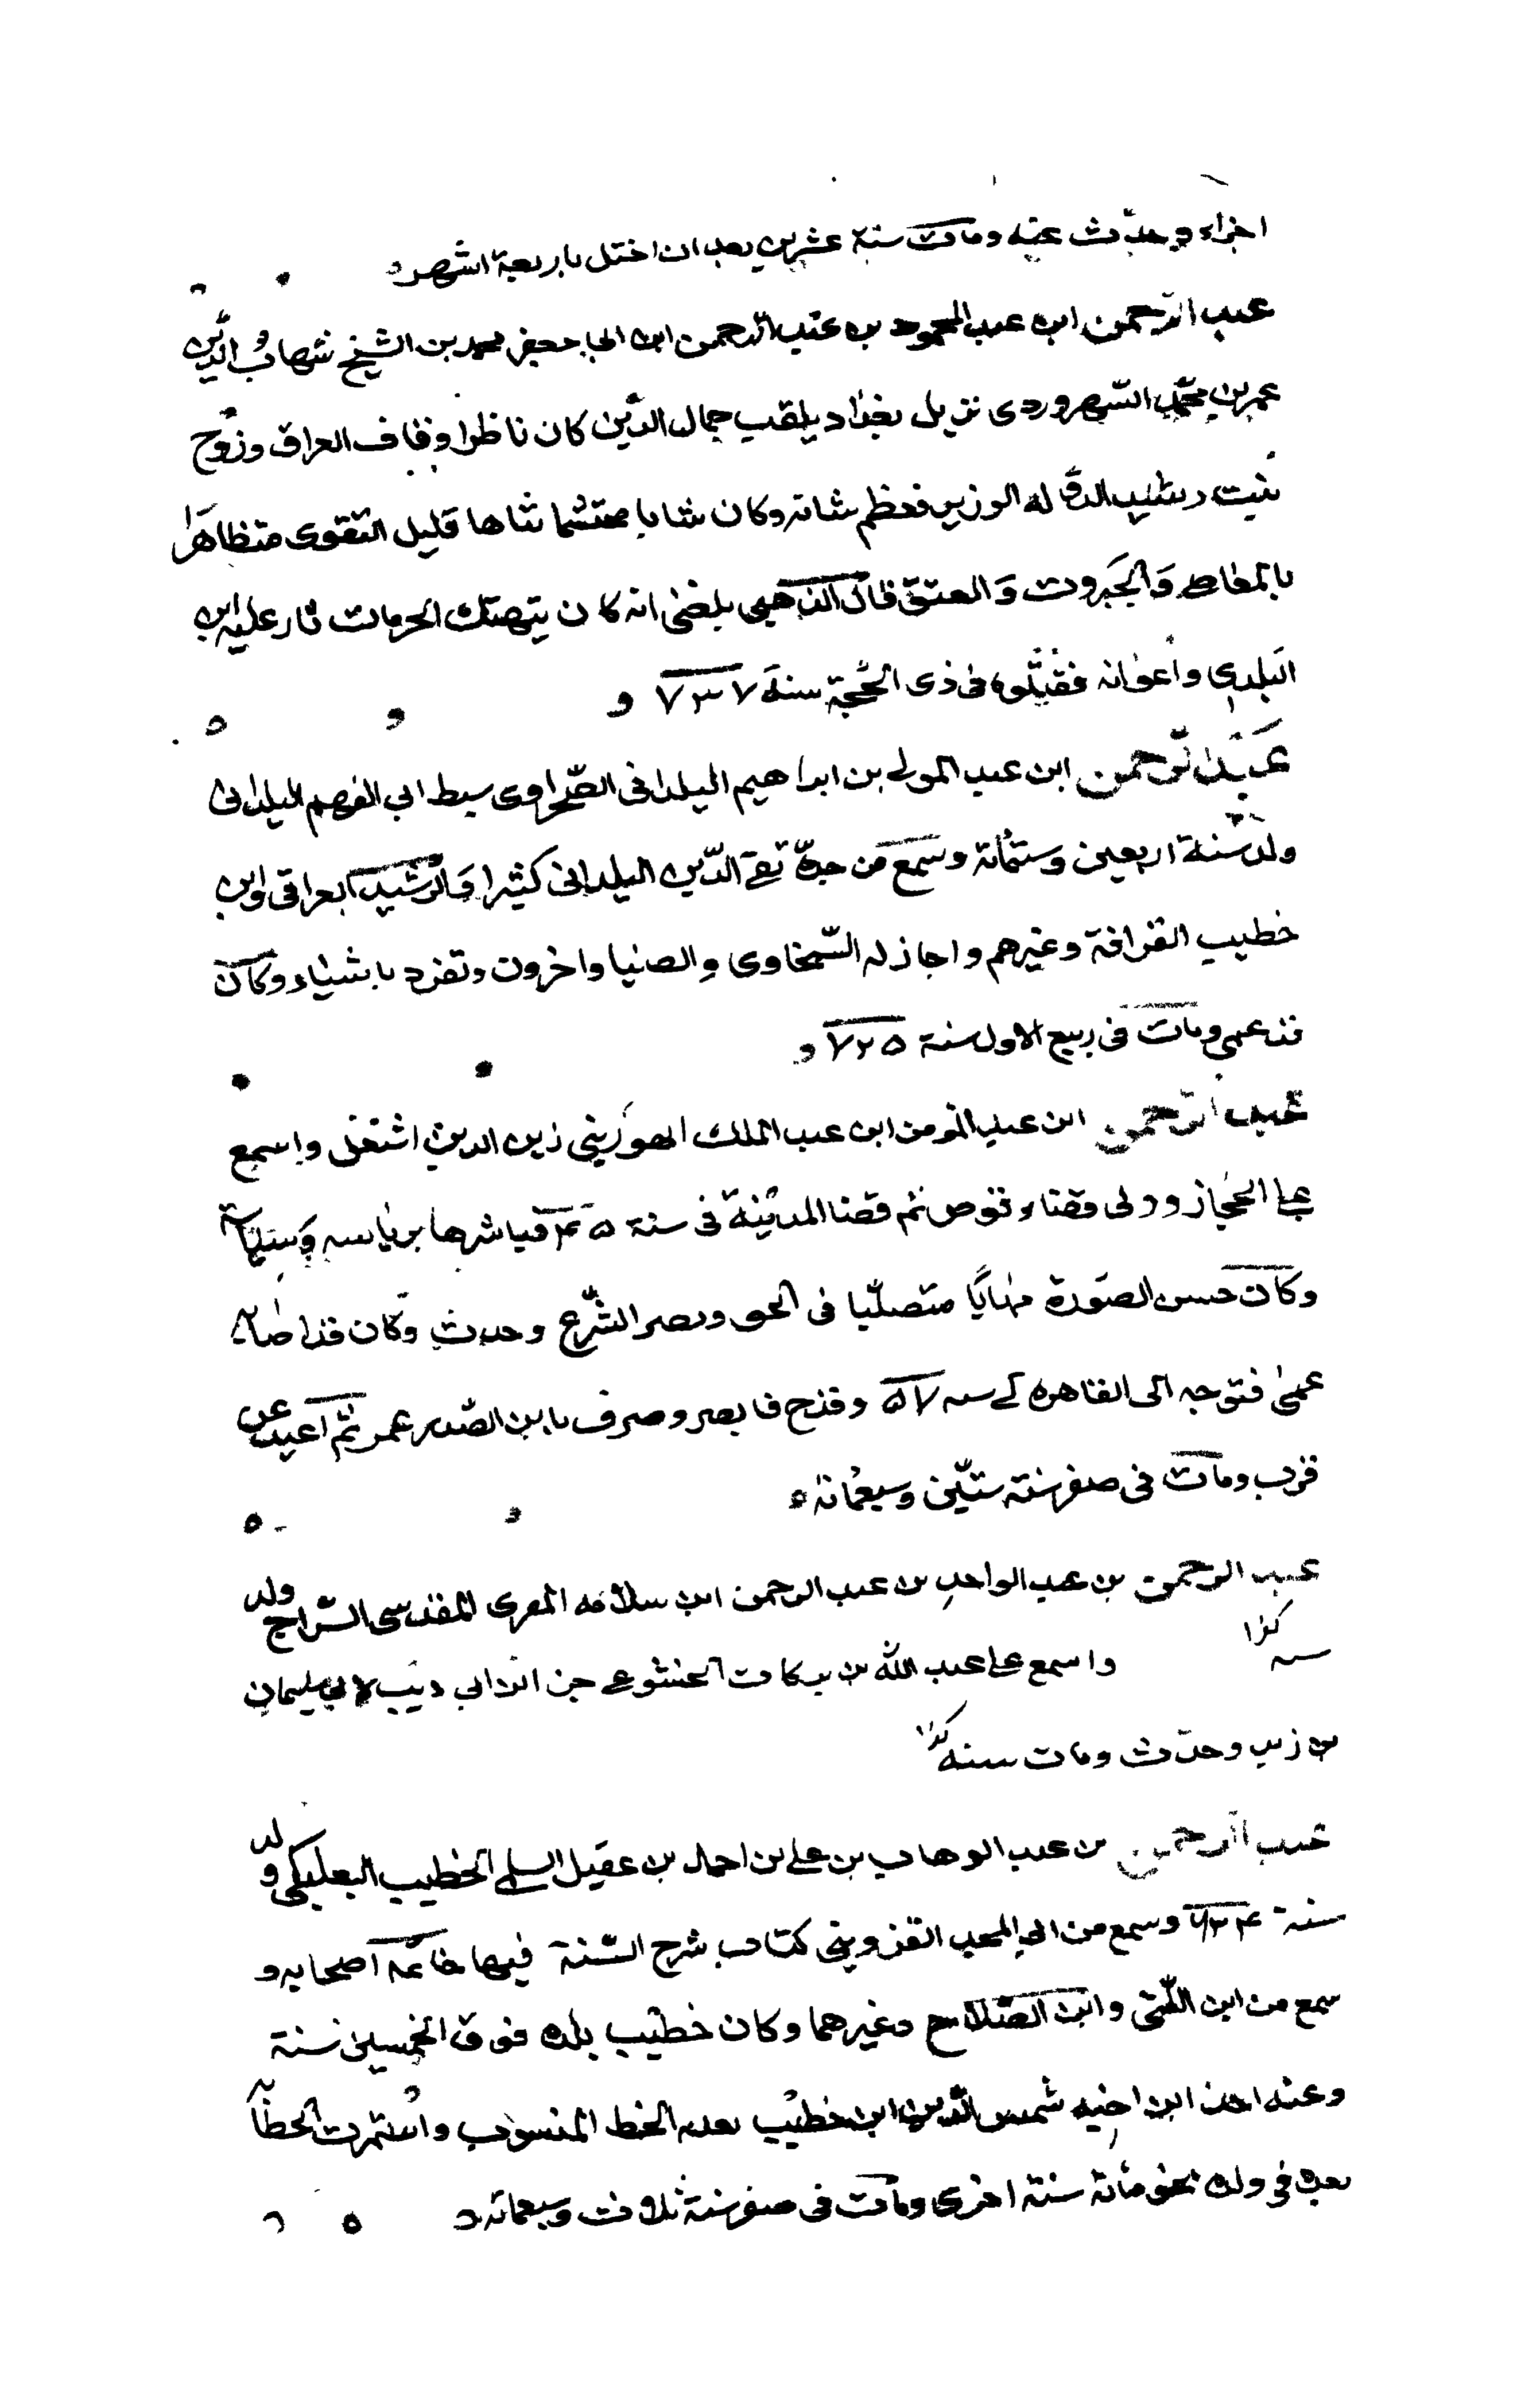 اجزاء وحدّث عنه ومات سنة عشرين بعد ان اختل باربعة اشهر
عبد الرحمن ابن عبد المحمود بن عبد الرحمن ابن ابى جعفر محمد بن الشيخ شهاب الدين
عمر بن محمد السهروردى نزيل بغداد يلقب جمال الدين كان ناظر اوقاف العراق وزوج
بنت رشيد الدولة الوزير فعظم شانه وكان شابا محتشما تياها قليل التقوى متظاهرا
بالمغاط والجبروت والعتق قال الذهبى بلغنى انه كان يتهتك الحرمات ثار عليه ابن
البلدى واعوانه فقتلوه فى ذى الحجة سنة ٧٣٧
عبد الرحمن ابن عبد المولى بن ابراهيم اليلدانى الصحراوى سبط ابى الفهم اليلدانى
ولد سنة اربعين وستمائة وسمع من جده تقى الدين اليلدانى كثيرا والرشيد العراقى وابن
خطيب القرافة وغيرهم واجاز له السخاوى والضيا واخرون وتفرد باشياء وكان
قد عمى ومات فى ربيع الاول سنة ٧٢٥
عبد الرحمن ابن عبد المومن ابن عبد الملك الهورينى زين الدين اشتغل واسمع
على الحجاز وولى قضاء قوص ثم قضا المدينة فى سنة ٤٥ فباشرها برياسة وسياسة
وكان حسن الصورة مهابا متصلبا فى الحق ونصر الشرع وحدث وكان قد اصابه
عمى فتوجه الى القاهرة فى سنه ٥٧ وقدح فابصر وصرف بابن الصدر عمر ثم اعيد عن
قرب ومات فى صفر سنة ستين وسبعمائة
عبد الرحمن بن عبد الواحد بن عبد الرحمن ابن سلامه المعرى المقدسى السراج ولد
سنه كذا واسمع على عبد الله بن بركات الخشوعى جزء ابن ابى ذيب لابى سليمان
بن زبر وحدث ومات سنه كذا
عبد الرحمن بن عبد الوهاب بن على بن احمد بن عقيل السلمى الخطيب البعلبكى ولد
سنة ٦٢٤ وسمع من ابى المجد القزوينى كتاب شرح السنة فيها خاتمة اصحابه و
سمع من ابن اللتى وابن الصلاح وغيرهما وكان خطيب بلده فوق الخمسين سنة
وعنه اخذ ابن اخيه شمس الدين ابن خطيب بعده الخط المنسوب واستمرت الخطابة
بعده فى ولده نحو مائة سنة اخرى ومات فى صفر سنة ثلاث وسبعمائة